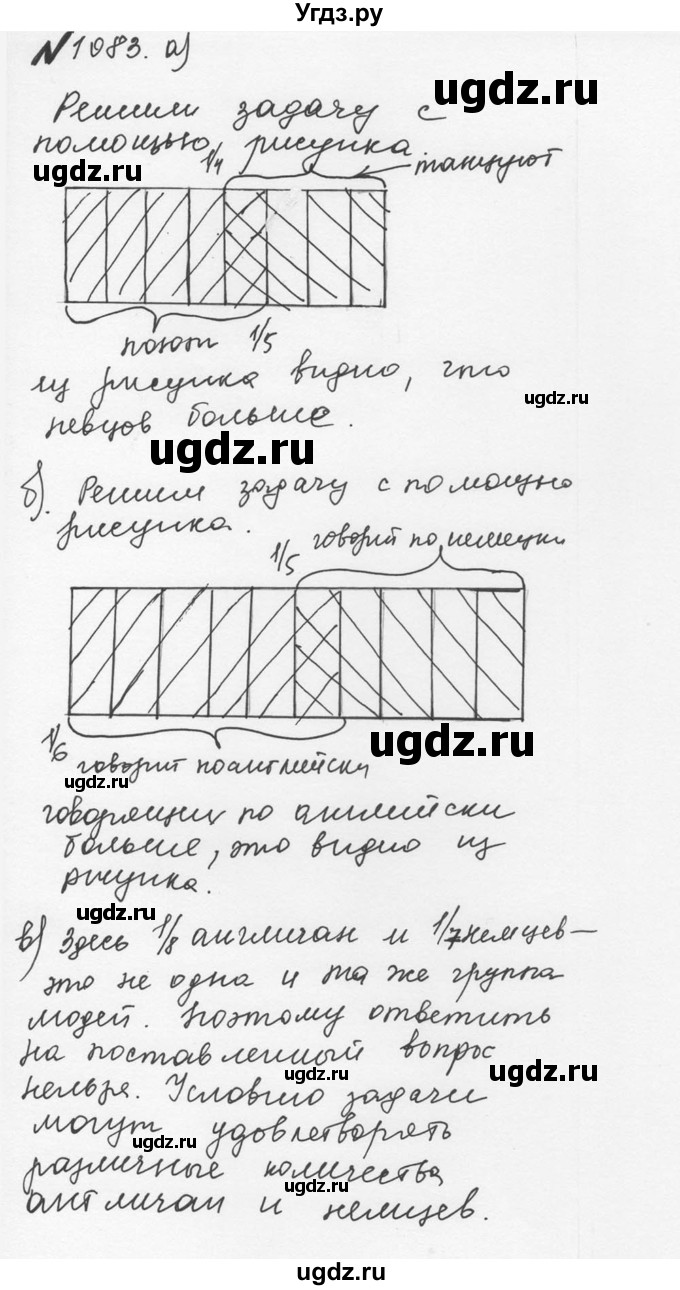 Угдз.ру
№1083. а)
ugdz.ru
Решим задачу с
помощью рисунка.
ugdz.ru
1/4
танцуют
поют 1/5
из рисунка видно, что
ugdz.ru
певцов больше.
ugdz.ru
б). Решим задачу с помощью
рисунка.
1/5 говорит по немецки
ugdz.ru
1/6 говорит по английски
ugdz.ru
говорящих по английски
больше, это видно из
рисунка.
ugdz.ru
в) Здесь 1/8 англичан и 1/7 немцев —
это не одна и та же группа
людей. Поэтому ответить
на поставленный вопрос
ugdz.ru
нельзя. Условию задачи
могут удовлетворять
ugdz.ru
различные количества
ugdz.ru
англичан и немцев.
ugdz.ru